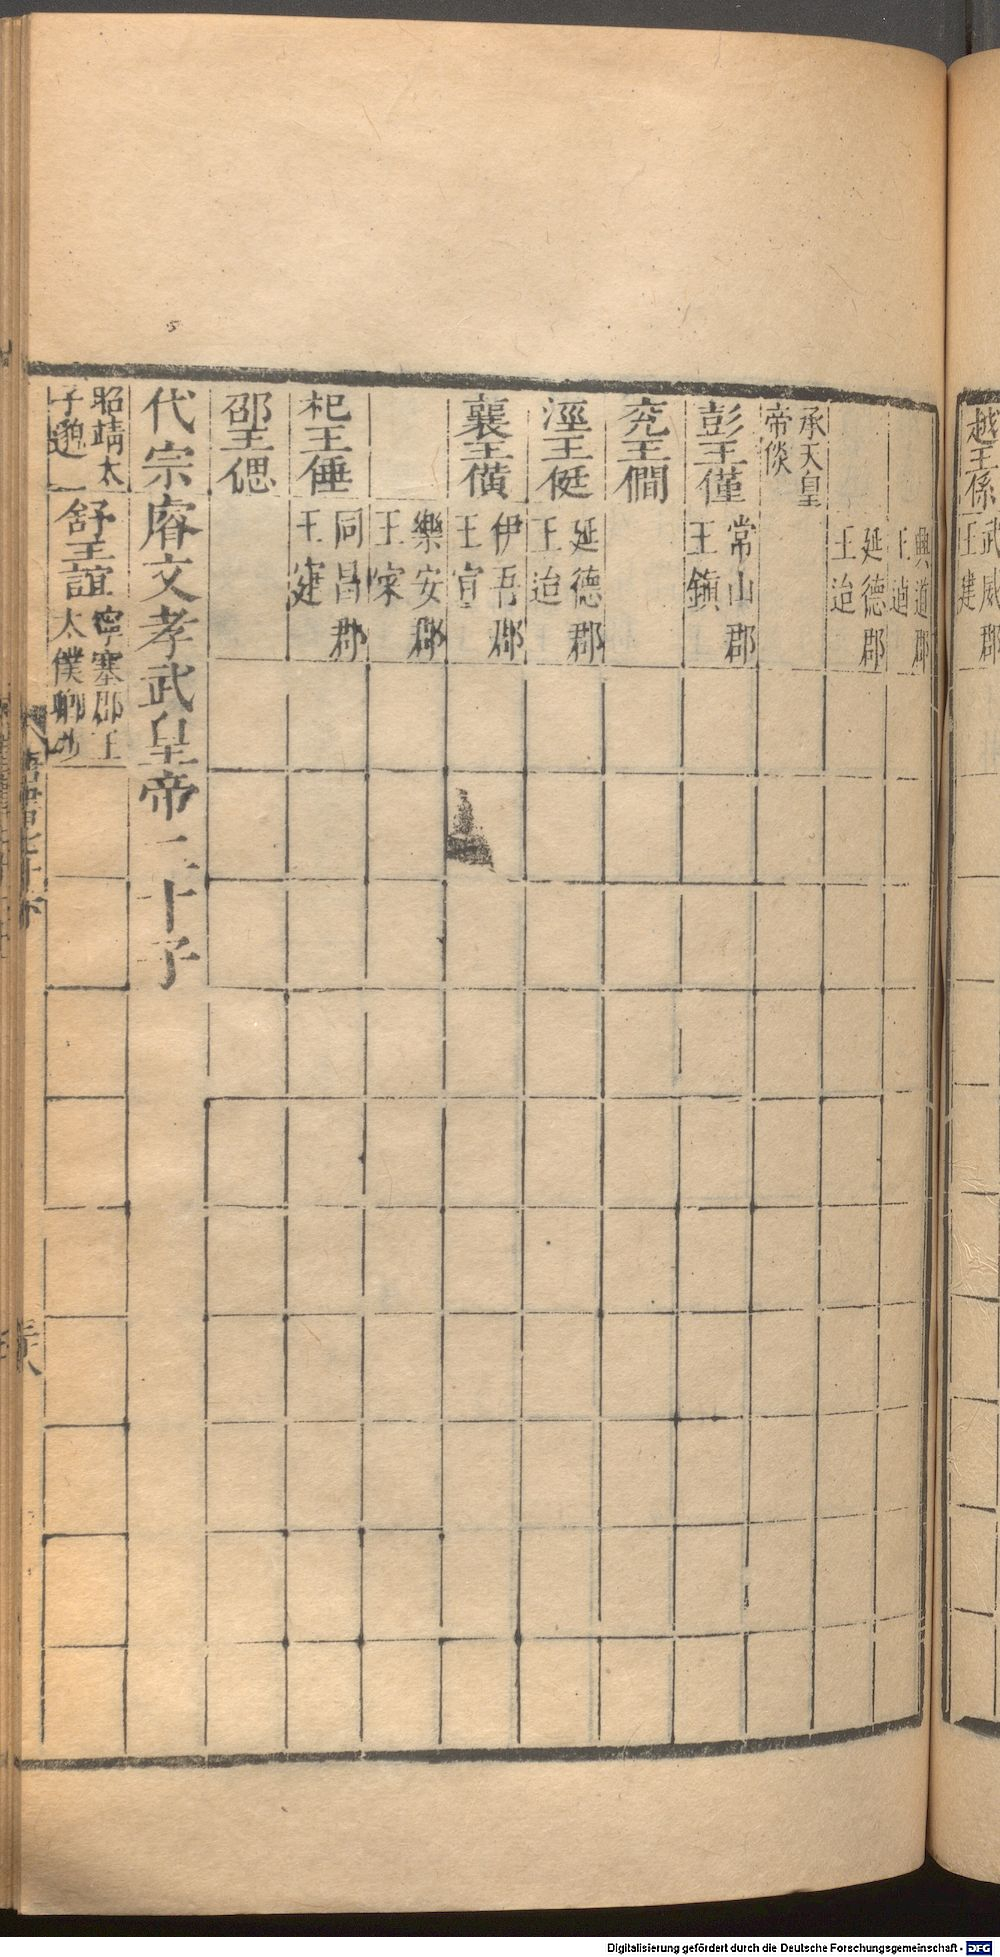 越王係
武威郡
王建
興道郡
王逌
延德郡
王迨
承天皇
帝倓
彭王僅
常山郡
王鎮
兖王僴
涇王侹
延德郡
王迨
襄王僙
伊吾郡
王宜
樂安郡
王寀
杞王倕
同昌郡
王
邵王偲
代宗睿文孝武皇帝二十子
昭靖太
子邈
舒王誼
寧塞郡王
太僕卿
Digitalisierung gefördert durch die Deutsche Forschungsgemeinschaft - DFG